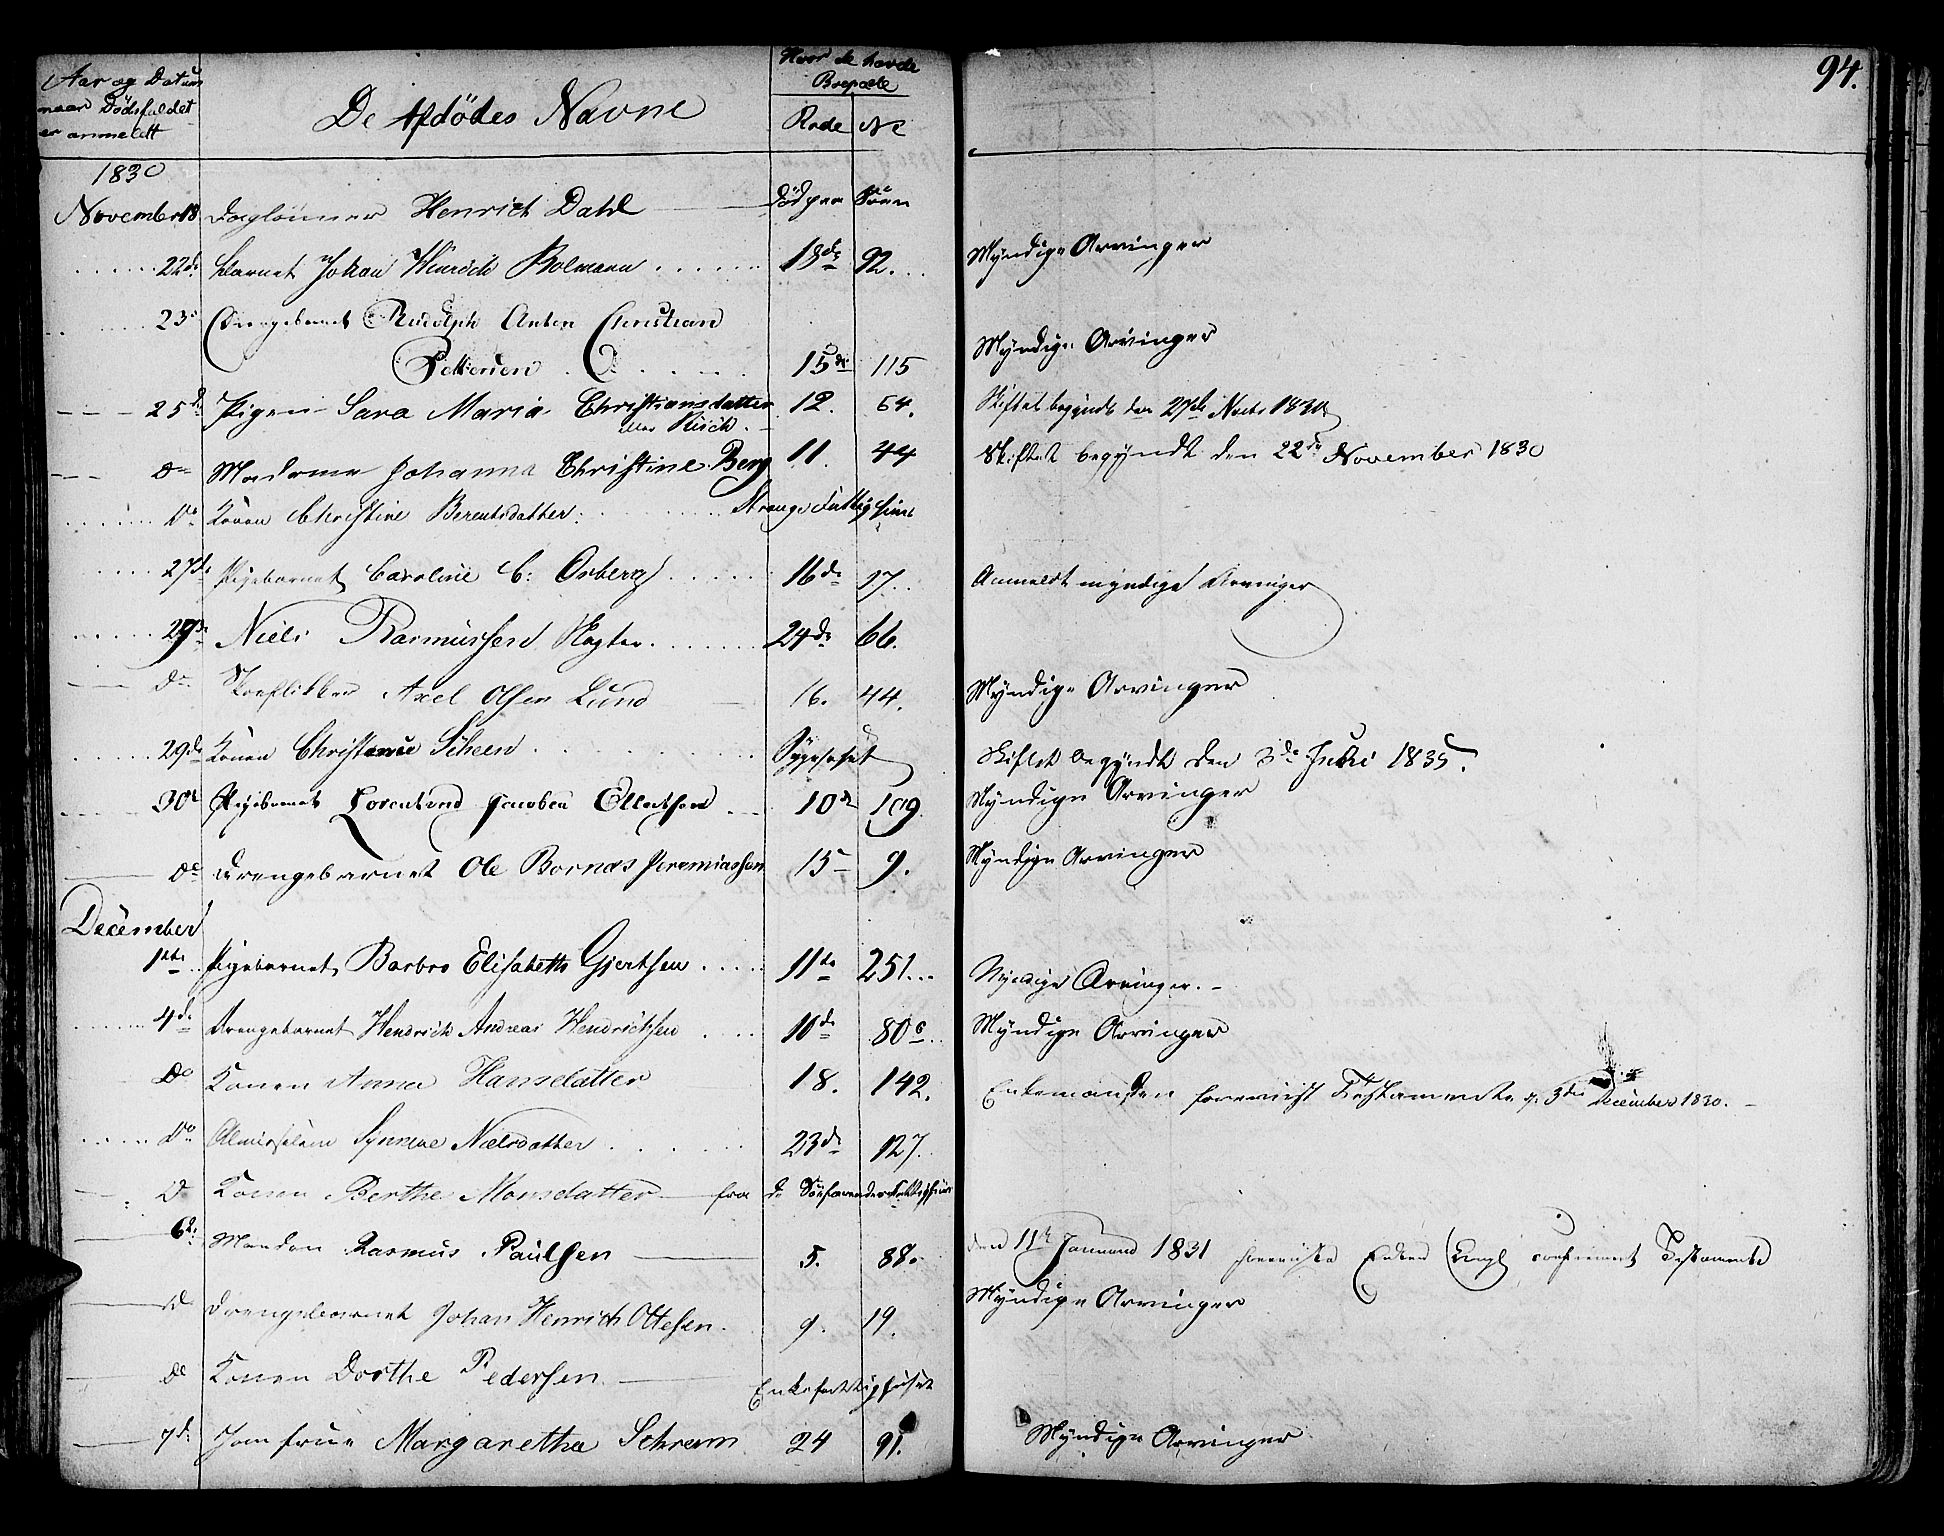 94.
Aar og Datum
naar Dødsfaldet
er anmeldt
De Afdødes Navne
Hvor de havde
Bopæle
Rode No
1830
November 18 Daglønner Henrich Dahl Død paa Søen
22de Barnet Johan Hinrich Bolmann 18de 92. Myndige Arvinger
23de Drengebarnet Rudolph Anton Christian
Pettersen 15de 115 Myndige Arvinger
25de Pigen Sara Maria Christiansdatter 12. 64. Skiftet begyndt den 27de Novbr 1830
eller Risch
Do Madame Johanna Christine Berg 11. 44 Skiftet begyndt den 22de November 1830
Do Konen Christine Berentsdatter Strangs Fattighuus
27de Pigebarnet Caroline C: Osberg 16de 17. Anmeldt myndige Arvinger
29de Niels Rasmussen Slagter 24de 66.
Do Skoeflikker Axel Olsen Lund 16. 44. Myndige Arvinger
29de Konen Christense Scheen Sygehuset Skiftet begyndt den 3de Juli 1835.
30te Pigebarnet Lorentine Jacobea Ellertsen 10de 109 Myndige Arvinger
Do Drengebarnet Ole Bornæs Jeremiassen 15 9. Myndige Arvinger
December
1ste Pigebarnet Barbro Elisabeth Gjertsen 11te 251 Myndige Arvinger
4de Drengebarnet Hendrich Andreas Hendrichsen 10de 80 Myndige Arvinger
Do Konen Anna Hansdatter 18. 142. Enkemanden foreviist Testamente d. 3de December 1830.
Do Almisselem Synneve Nielsdatter 23de 127.
Do Konen Berthe Monsdatter fra de Søefarendes Fattighuus
6te Manden Rasmus Paulsen 5. 88. den 11te Januar 1831 foreviiste Enken Kongl confirmeret Testamente
Do Drengebarnet Johan Henrich Ottesen 9. 19. Myndige Arvinger
Do Konen Dorthe Pedersen Enkefattighuset
7de Jomfrue Margaretha Schram 24 91. Myndige Arvinger